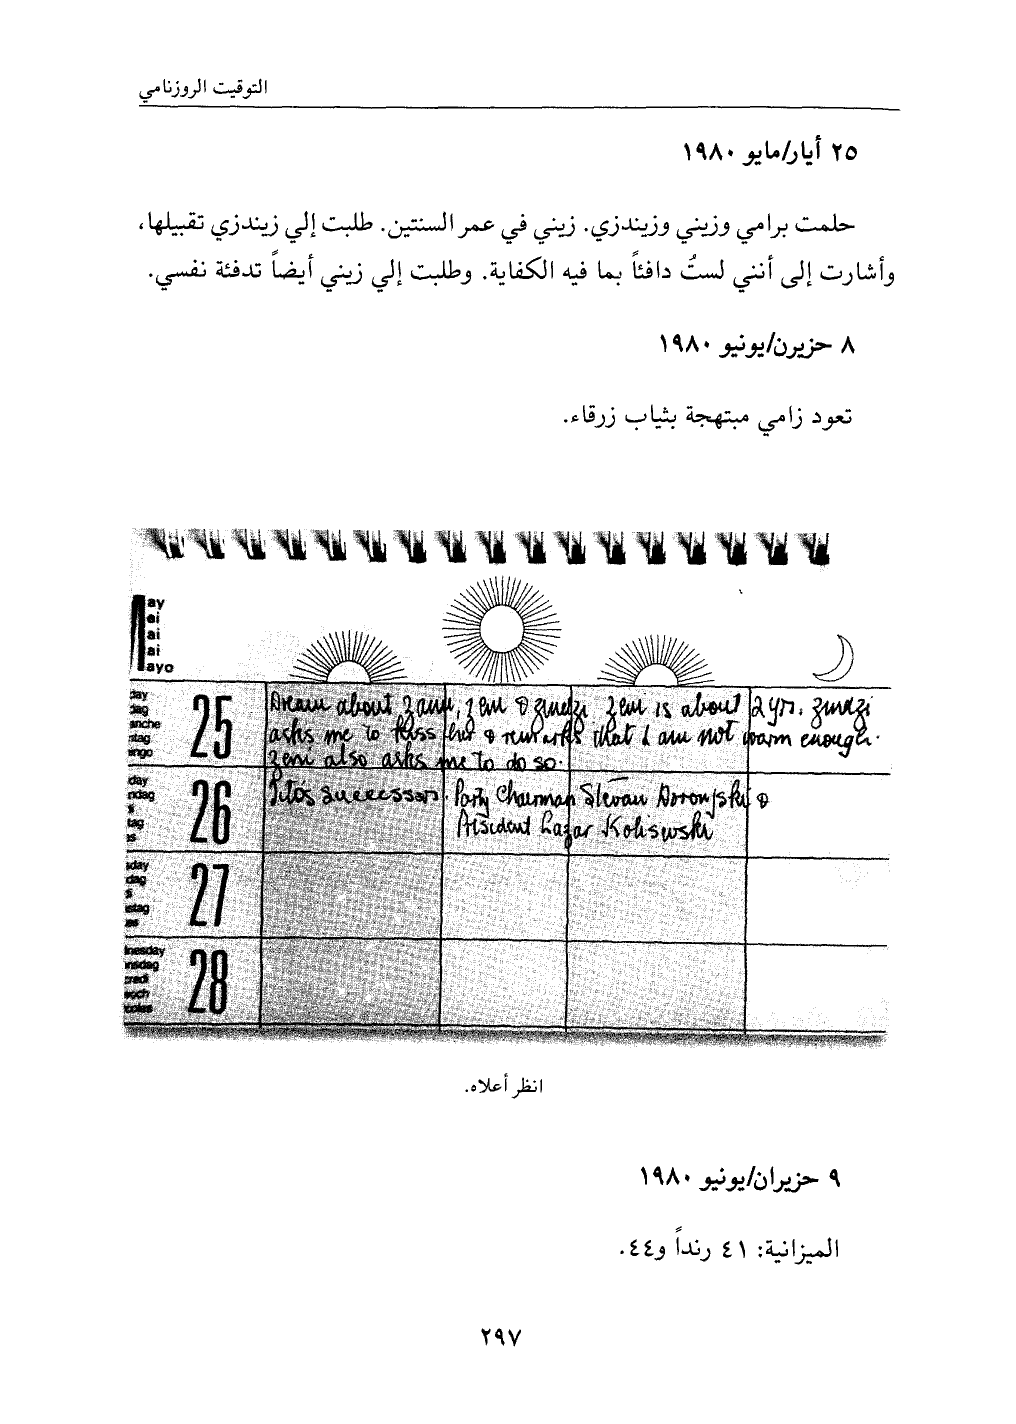 التوقيت الروزنامي
٢٥ أيار/مايو ١٩٨٠
حلمت برامي وزيني وزيندزي. زيني في عمر السنتين. طلبت إلي زيندزي تقبيلها،
وأشارت إلى أنني لستُ دافئاً بما فيه الكفاية. وطلبت إلي زيني أيضاً تدفئة نفسي.
٨ حزيرن/يونيو ١٩٨٠
تعود زامي مبتهجة بثياب زرقاء.
ay
ei
ai
ai
ayo
day
dag
anche
ntag
ingo
25
Dream about Zami, Zeni & Zindzi Zeni is about 2 yrs. Zindzi
asks me to kiss her & remarks that I am not warm enough.
Zeni also asks me to do so.
day
ndag
tag
es
26
Tito's successors. Party Chairman Stevan Doronjski &
President Lazar Kolisevski
sday
dag
stag
es
27
nesday
nsdag
credi
woch
coles
28
انظر أعلاه.
٩ حزيران/يونيو ١٩٨٠
الميزانية: ٤١ رنداً و٤٤.
٢٩٧